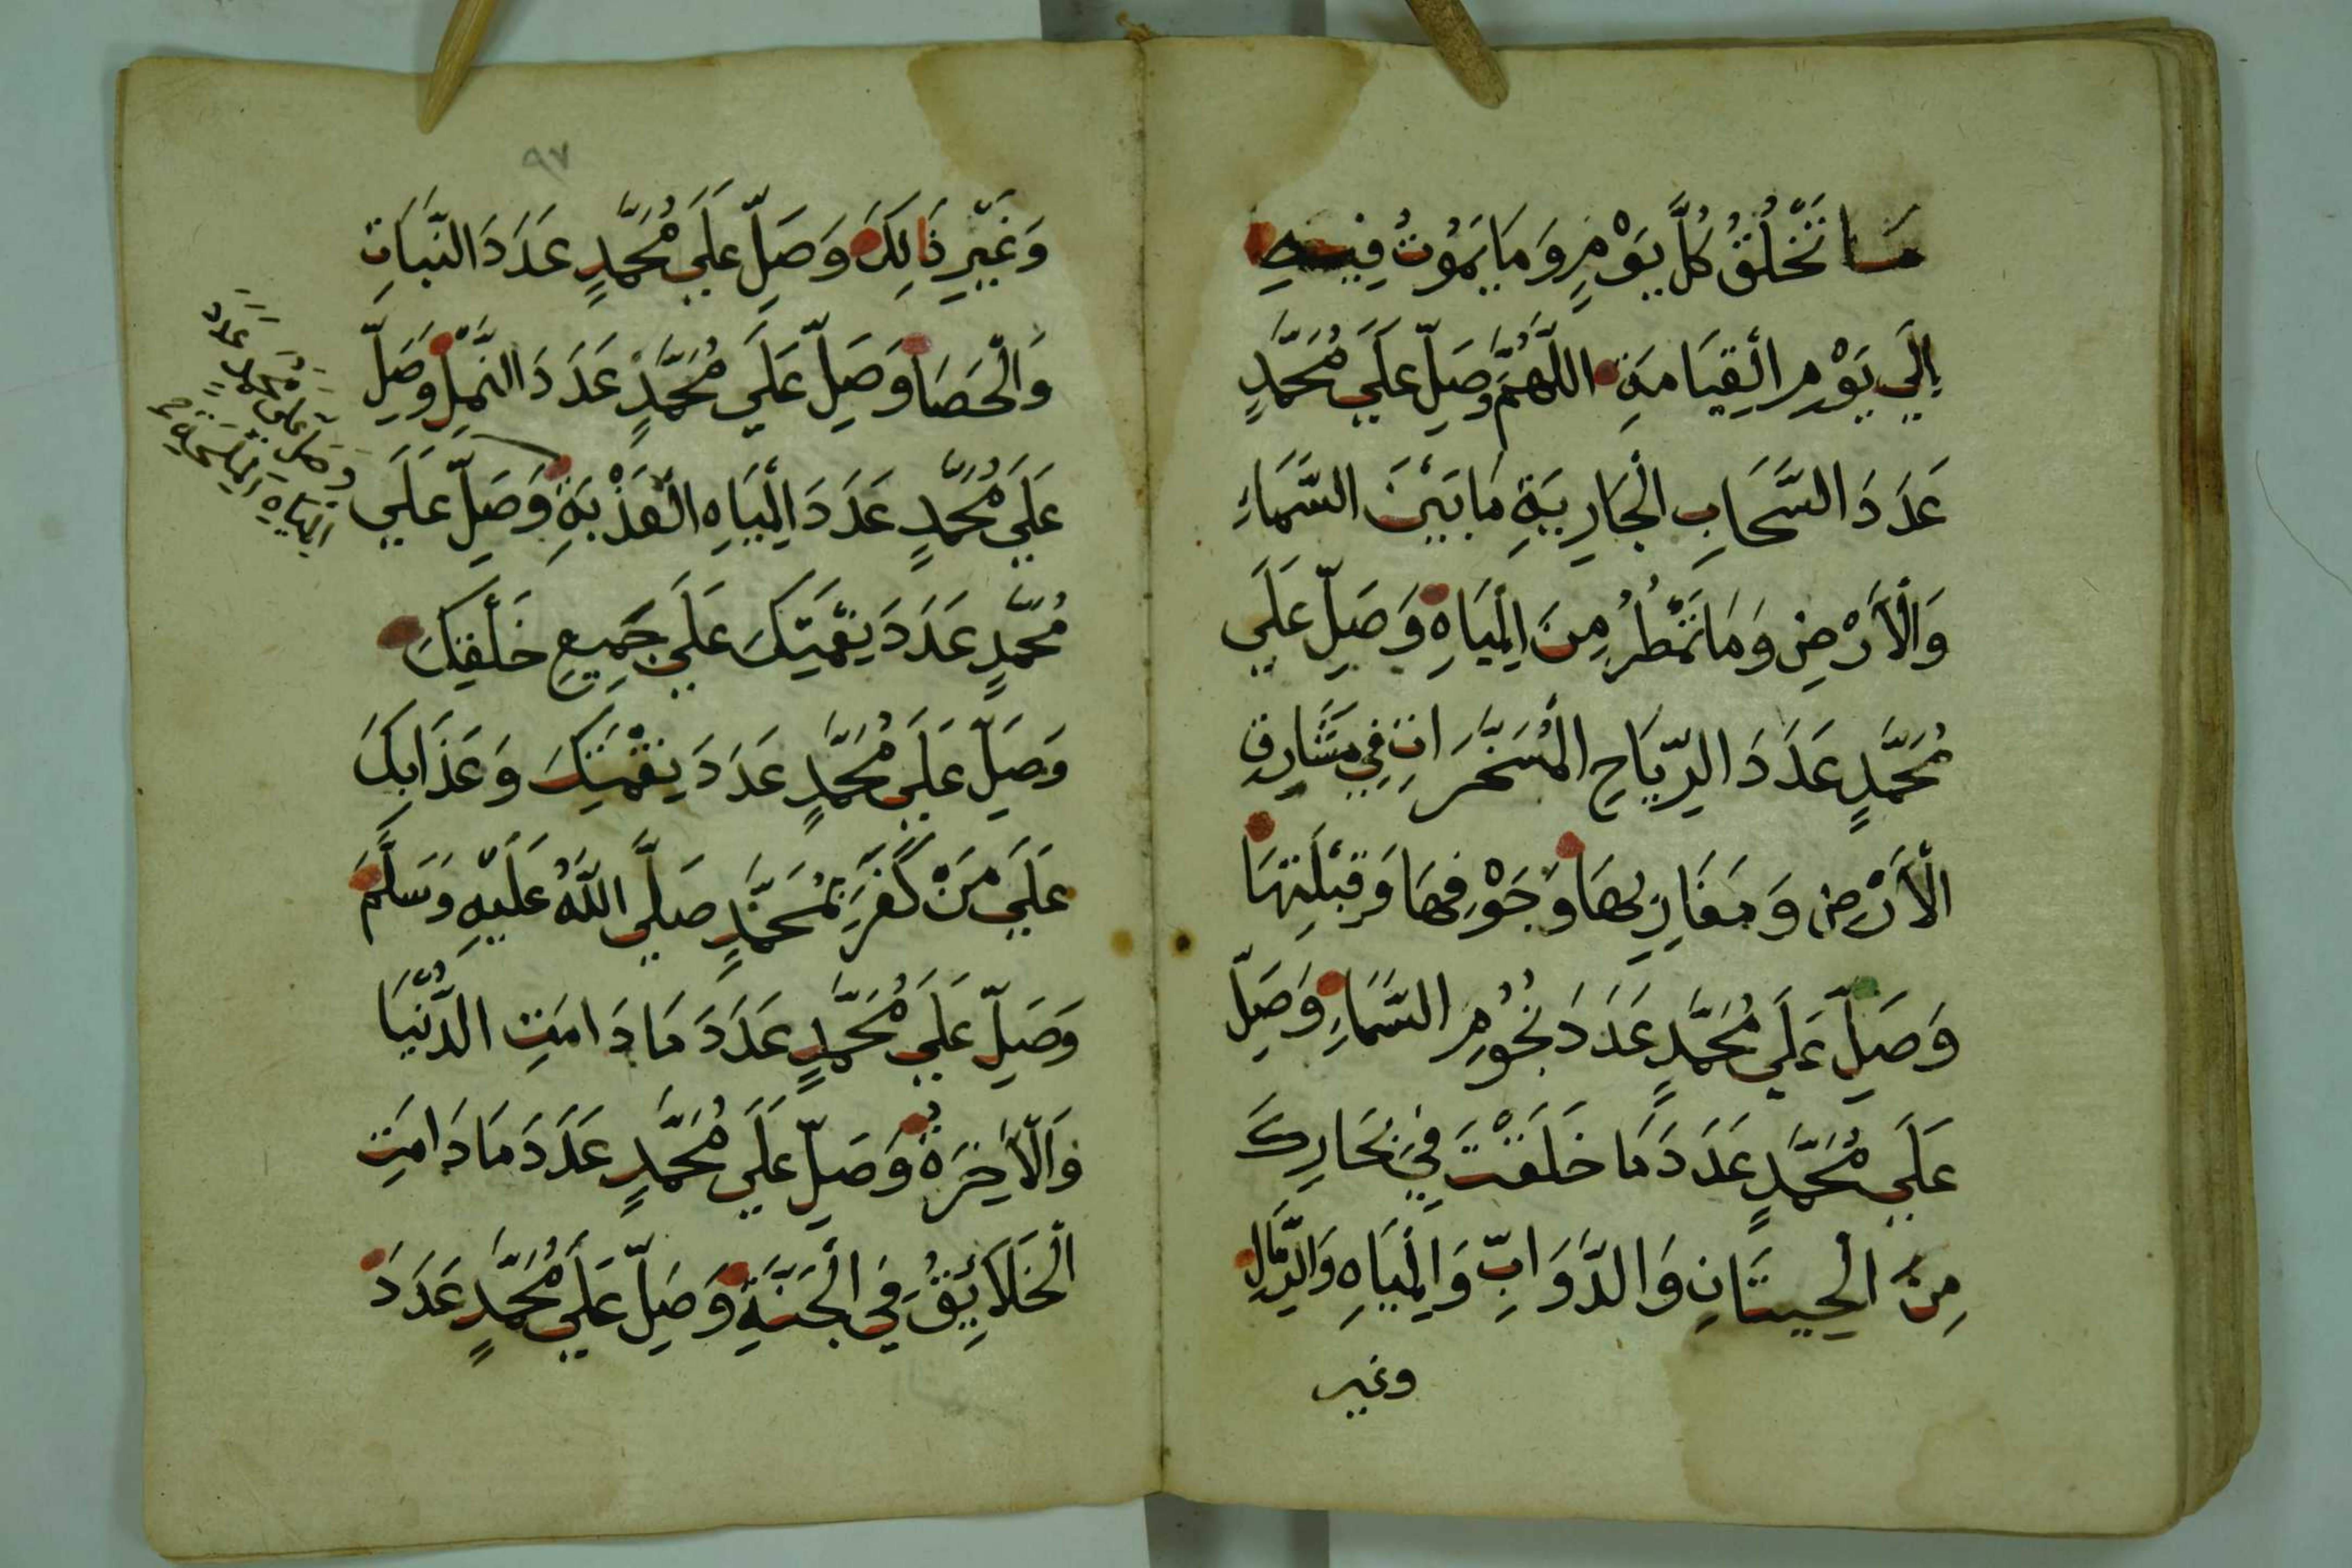 مَا تَخْلُقُ كُلَّ يَوْمٍ وَمَا يَمُوتُ فِيهِ
إِلَي يَوْمِ الْقِيَامَةِ اللَّهُمَّ وَصَلِّ عَلَي مُحَمَّدٍ
عَدَدَ السَّحَابِ الْجَارِيَةِ مَا بَيْنَ السَّمَاءِ
وَالْأَرْضِ وَمَا تَمْطُرُ مِنَ الْمِيَاهِ وَصَلِّ عَلَي
مُحَمَّدٍ عَدَدَ الرِّيَاحِ الْمُسَخَّرَاتِ فِي مَشَارِقِ
الْأَرْضِ وَمَغَارِبِهَا وَجَوْفِهَا وَقِبْلَتِهَا
وَصَلِّ عَلَي مُحَمَّدٍ عَدَدَ نُجُومِ السَّمَاءِ وَصَلِّ
عَلَي مُحَمَّدٍ عَدَدَ مَا خَلَقْتَ فِي بِحَارِكَ
مِنَ الْحِيتَانِ وَالدَّوَابِّ وَالْمِيَاهِ وَالرِّمَالِ
وغير
٩٧
وَغَيْرِ ذَالِكَ وَصَلِّ عَلَي مُحَمَّدٍ عَدَدَ النَّبَاتِ
وَالْحَصَا وَصَلِّ عَلَي مُحَمَّدٍ عَدَدَ النَّمْلِ وَصَلِّ
عَلَي مُحَمَّدٍ عَدَدَ الْمِيَاهِ الْعَذْبَةِ وَصَلِّ عَلَي
وَصَلِّ عَلَى مُحَمَّدٍ عَدَدَ
الْمِيَاهِ الْمِلْحَةِ صح
مُحَمَّدٍ عَدَدَ نِعْمَتِكَ عَلَي جَمِيعِ خَلْقِكَ
وَصَلِّ عَلَي مُحَمَّدٍ عَدَدَ نِقْمَتِكَ وَعَذَابِكَ
عَلَي مَنْ كَفَرَ بِمُحَمَّدٍ صَلَّي اللَّهُ عَلَيْهِ وَسَلَّمَ
وَصَلِّ عَلَي مُحَمَّدٍ عَدَدَ مَا دَامَتِ الدُّنْيَا
وَالْآخِرَةُ وَصَلِّ عَلَي مُحَمَّدٍ عَدَدَ مَا دَامَتِ
الْخَلَائِقُ فِي الْجَنَّةِ وَصَلِّ عَلَي مُحَمَّدٍ عَدَدَ